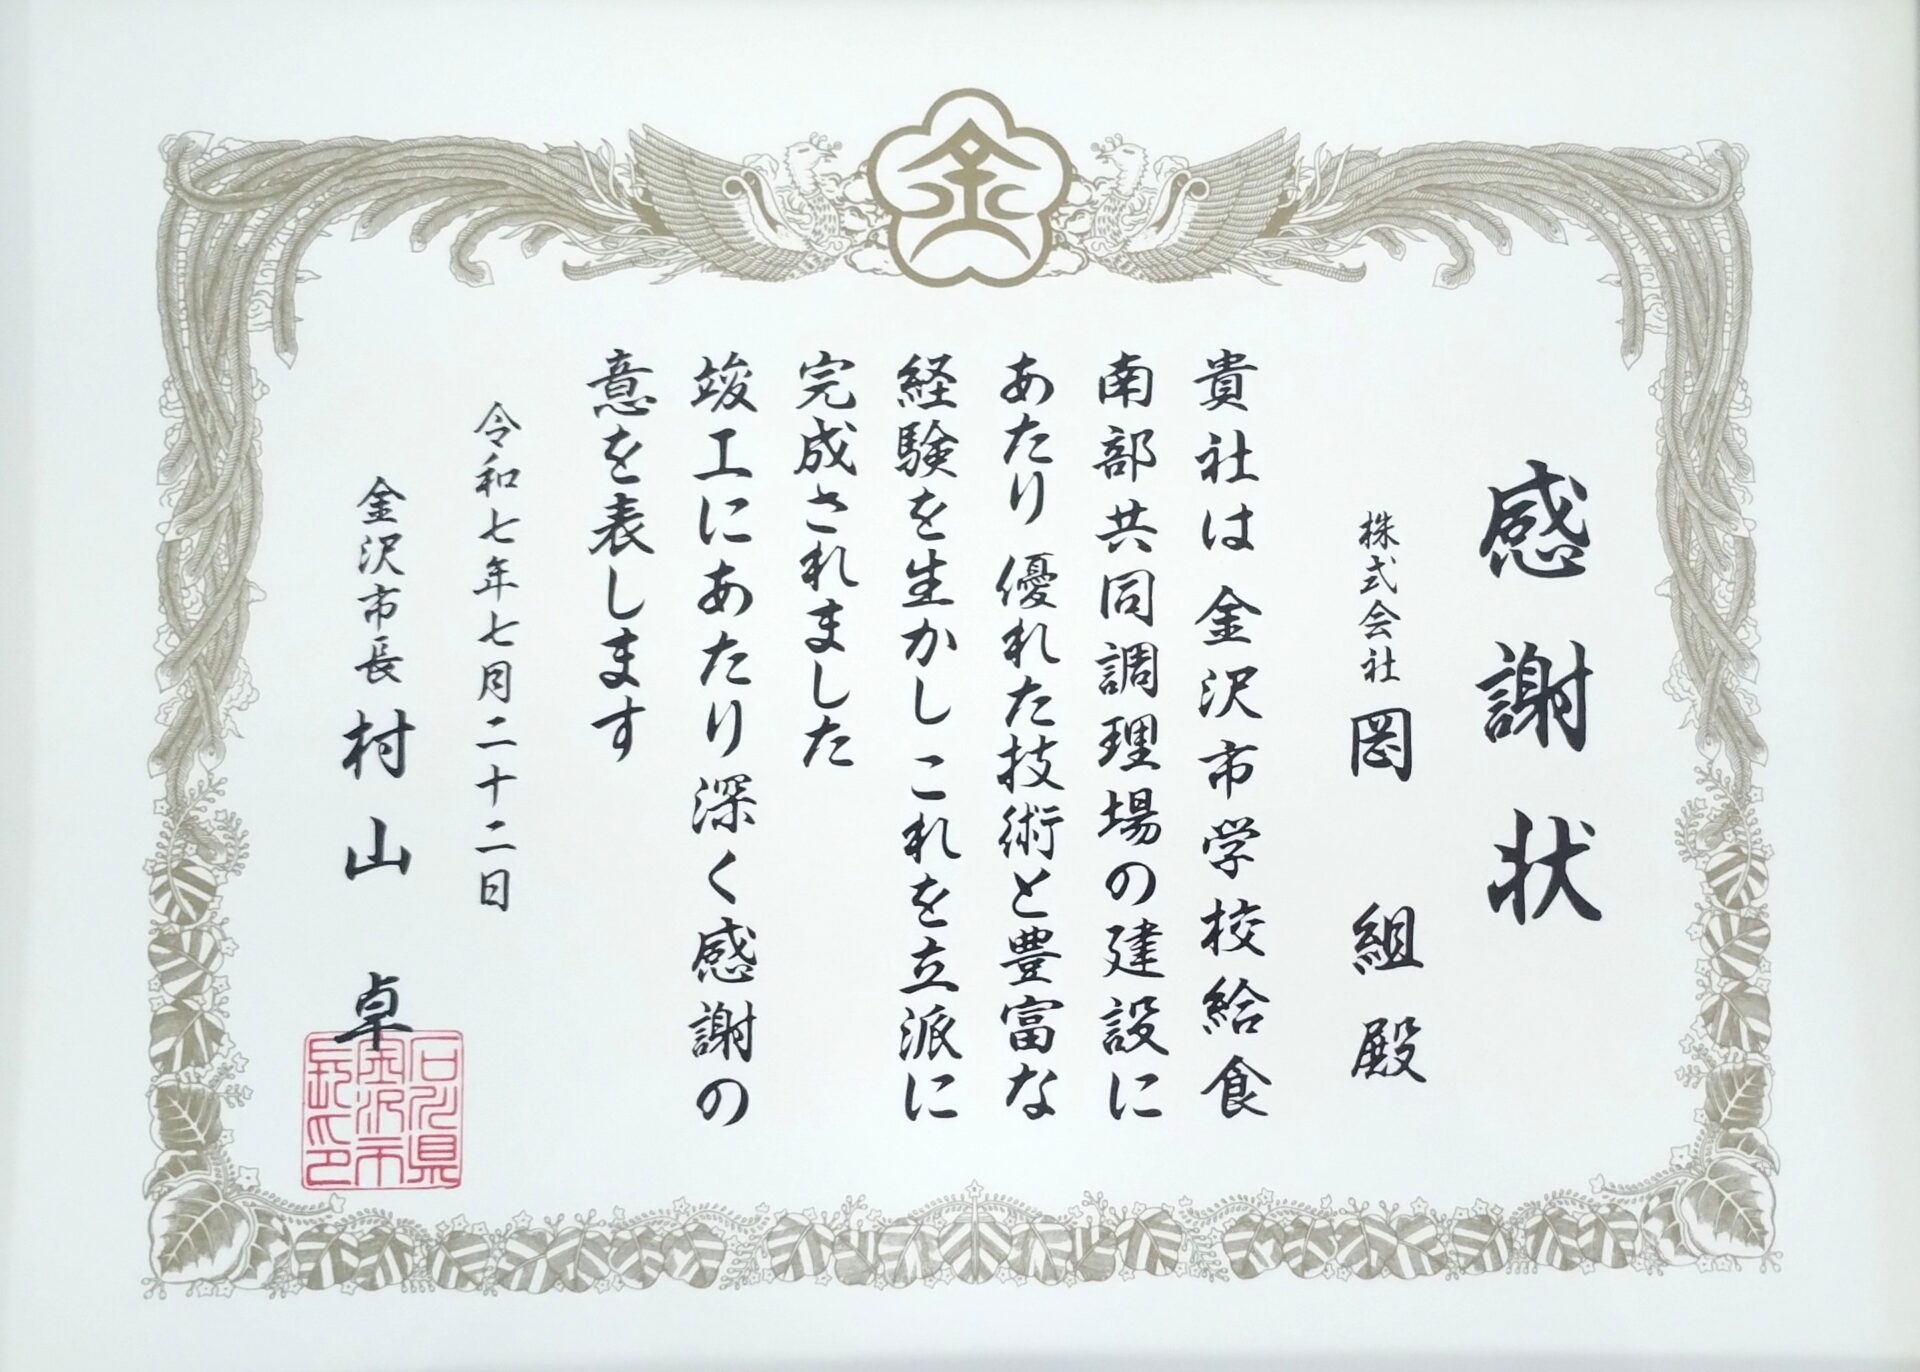 感謝状
株式会社 岡 組 殿
貴社は金沢市学校給食
南部共同調理場の建設に
あたり優れた技術と豊富な
経験を生かしこれを立派に
完成されました
竣工にあたり深く感謝の
意を表します
令和七年七月二十二日
金沢市長 村山 卓
石川県
金沢市
長之印
金